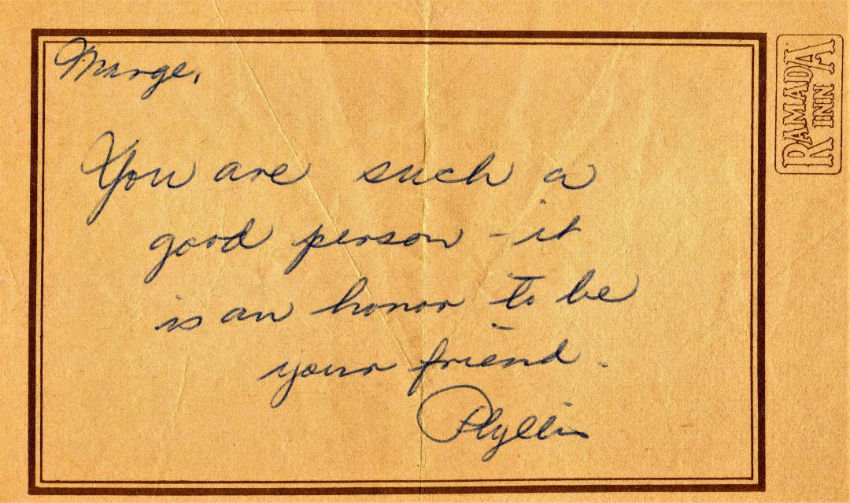 Marge,
You are such a
good person - it
is an honor to be
your friend.
Phyllis
RAMADA
INN